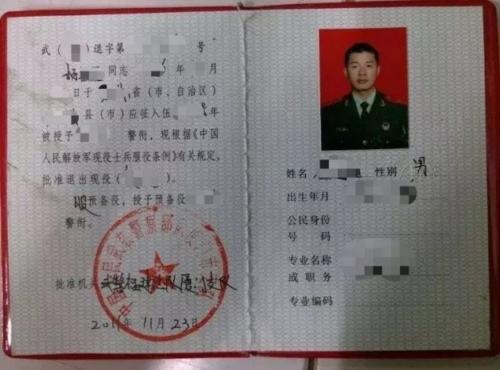 武( )退字第 号
杨 同志 年 月
日于 省(市、自治区)
县(市)应征入伍 年
被授予 警衔,现根据《中国
人民解放军现役士兵服役条例》有关规定,
批准退出现役( )。
服预备役,授予预备役
警衔。
批准机关
2011年11月23日
姓名 性别 男
出生年月
公民身份
号码
专业名称
或职务
专业编码